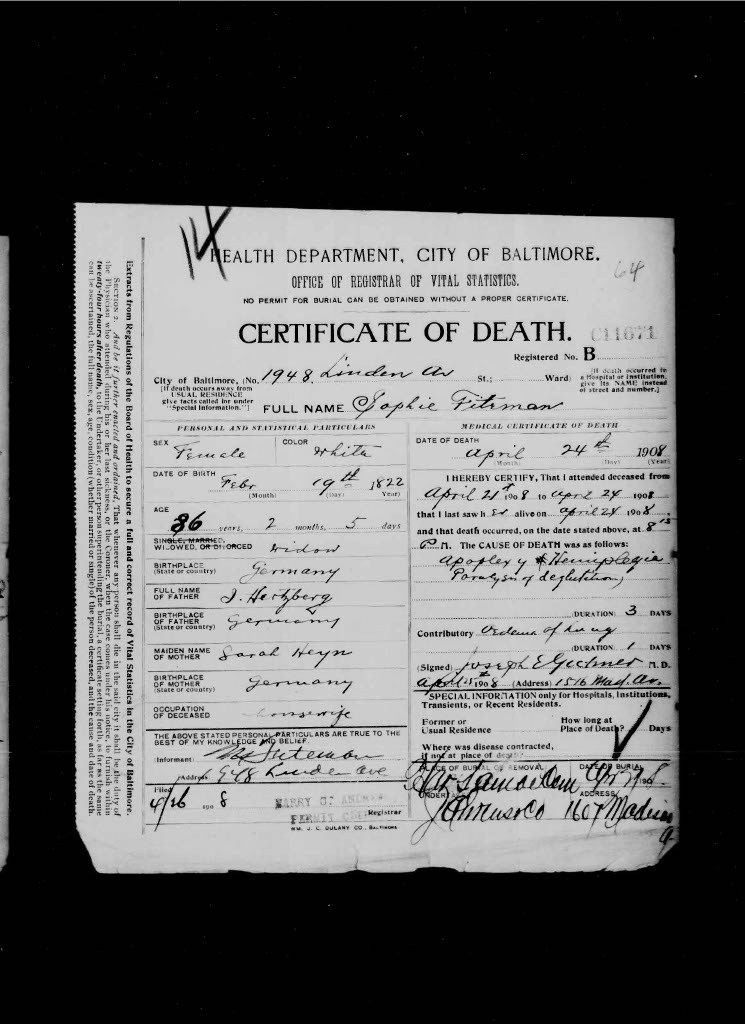 14
HEALTH DEPARTMENT, CITY OF BALTIMORE.
64
OFFICE OF REGISTRAR OF VITAL STATISTICS.
NO PERMIT FOR BURIAL CAN BE OBTAINED WITHOUT A PROPER CERTIFICATE.
CERTIFICATE OF DEATH.
C11671
Registered No. B
City of Baltimore, (No. 1948 Linden Av St.; Ward)
[If death occurs away from USUAL RESIDENCE give facts called for under "Special Information."]
[If death occurred in a Hospital or institution, give its NAME instead of street and number.]
FULL NAME Sophie
PERSONAL AND STATISTICAL PARTICULARS
SEX Female COLOR White
DATE OF BIRTH Febr 19th 1822
(Month) (Day) (Year)
AGE 86 years, 2 months, 5 days
SINGLE, MARRIED, WIDOWED, OR DIVORCED widow
BIRTHPLACE (State or country) Germany
FULL NAME OF FATHER J. Hertzberg
BIRTHPLACE OF FATHER (State or country) Germany
MAIDEN NAME OF MOTHER Sarah Heyn
BIRTHPLACE OF MOTHER (State or country) Germany
OCCUPATION OF DECEASED housewife
THE ABOVE STATED PERSONAL PARTICULARS ARE TRUE TO THE BEST OF MY KNOWLEDGE AND BELIEF.
(Informant)
(Address) 948 Linden Ave
Filed 4/26 1908
PERMIT
Registrar
WM. J. C. DULANY CO., BALTIMORE
MEDICAL CERTIFICATE OF DEATH
DATE OF DEATH April 24th 1908
(Month) (Day) (Year)
I HEREBY CERTIFY, That I attended deceased from
April 21st 1908 to April 24 1908
that I last saw her alive on April 24 1908
and that death occurred, on the date stated above, at 8 15
P M. The CAUSE OF DEATH was as follows:
Apoplexy & Hemiplegia
Paralysis of deglutition
(DURATION) 3 DAYS
Contributory Oedema of Lung
(DURATION) 1 DAYS
(Signed) Joseph E Gichner M.D.
April 25th 1908 (Address) 1516 Mad. Av.
SPECIAL INFORMATION only for Hospitals, Institutions, Transients, or Recent Residents.
Former or Usual Residence
How long at Place of Death? Days
Where was disease contracted, if not at place of death?
PLACE OF BURIAL OR REMOVAL DATE OF BURIAL
Apr 27 1908
UNDERTAKER ADDRESS
1607 Madison
Extracts from Regulations of the Board of Health to secure a full and correct record of Vital Statistics in the City of Baltimore.
SECTION 2. And be it further enacted and ordained, That whenever any person shall die in the said city it shall be the duty of
the Physician who attended during his or her last sickness, or the Coroner, when the case comes under his notice, to furnish within
twenty-four hours after death, to the Undertaker, or other person superintending the burial, a certificate setting forth, as far as the same
can be ascertained, the full name, sex, age, condition (whether married or single) of the person deceased, and the cause and date of death.